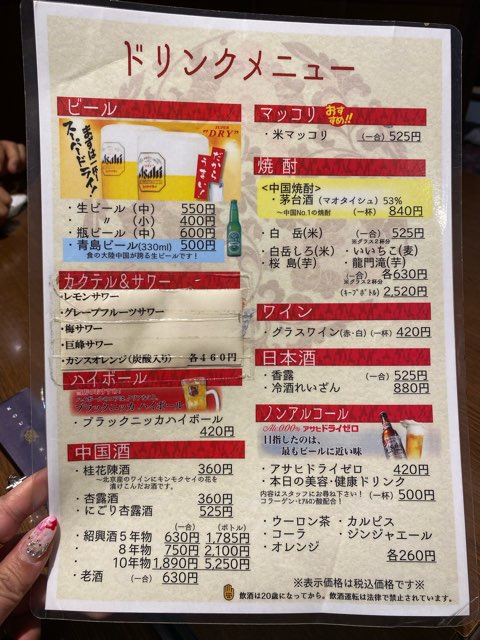 ドリンクメニュー
ビール
まずは一杯!
スーパードライ!
SUPER "DRY"
Asahi
Asahi
だから
うまい!
・生ビール(中) 550円
・ 〃 (小) 400円
・瓶ビール(中) 600円
・青島ビール(330ml) 500円
食の大陸中国が誇る生ビールです!
カクテル&サワー
・レモンサワー
・グレープフルーツサワー
・梅サワー
・巨峰サワー
・カシスオレンジ(炭酸入り) 各460円
ハイボール
ブラックニッカ ハイボール
・ブラックニッカハイボール
420円
中国酒
・桂花陳酒 360円
〜北京産のワインにキンモクセイの花を
漬けこんだお酒です。
・杏露酒 360円
・にごり杏露酒 525円
(一合) (ボトル)
・紹興酒5年物 630円 1,785円
・ 8年物 750円 2,100円
・ 10年物 1,890円 5,250円
・老酒 (一合) 630円
マッコリ おすすめ!!
・米マッコリ (一合) 525円
焼酎
<中国焼酎>
・茅台酒(マオタイシュ)53%
〜中国No.1の焼酎 (一杯) 840円
・白 岳(米) (一合) 525円
※グラス2杯分
・白岳しろ(米) ・いいちこ(麦)
・桜 島(芋) ・龍門滝(芋)
(一合) 各630円
※グラス2杯分
(キープボトル) 2,520円
ワイン
・グラスワイン(赤・白)(一杯) 420円
日本酒
・香露 (一合) 525円
・冷酒れいざん 880円
ノンアルコール
Alc.0.00% アサヒドライゼロ
目指したのは、
最もビールに近い味
・アサヒドライゼロ 420円
・本日の美容・健康ドリンク
内容はスタッフにお尋ね下さい! (一杯) 500円
コラーゲン・ヒアルロン酸配合!
・ウーロン茶 ・カルピス
・コーラ ・ジンジャエール
・オレンジ
各260円
※表示価格は税込価格です※
飲酒は20歳になってから。飲酒運転は法律で禁止されています。